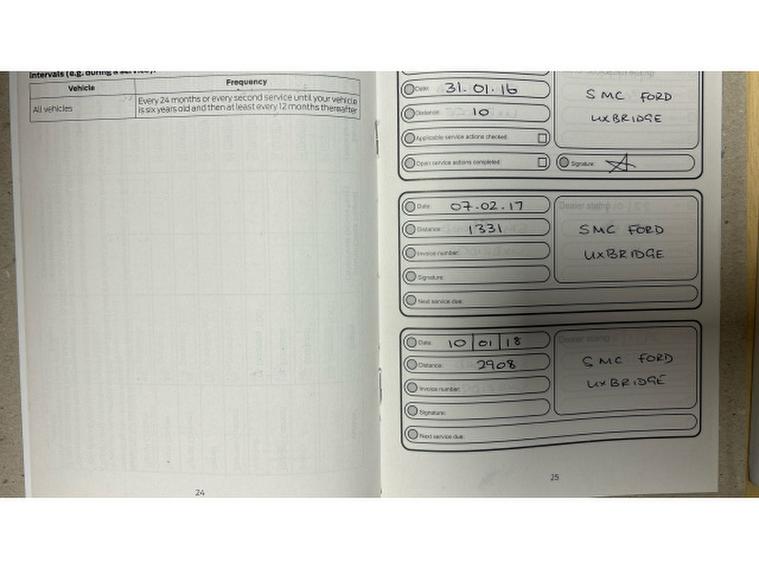 intervals (e.g. during a service).
Vehicle Frequency
All vehicles Every 24 months or every second service until your vehicle
is six years old and then at least every 12 months thereafter
24
Date: 31.01.16
Distance: 10
Applicable service actions checked:
Open service actions completed:
SMC FORD
UXBRIDGE
Signature:
Date: 07.02.17
Distance: 1331
Invoice number:
Signature:
Next service due:
Dealer stamp
SMC FORD
UXBRIDGE
Date: 10 01 18
Distance: 2908
Invoice number:
Signature:
Next service due:
Dealer stamp
SMC FORD
UXBRIDGE
25